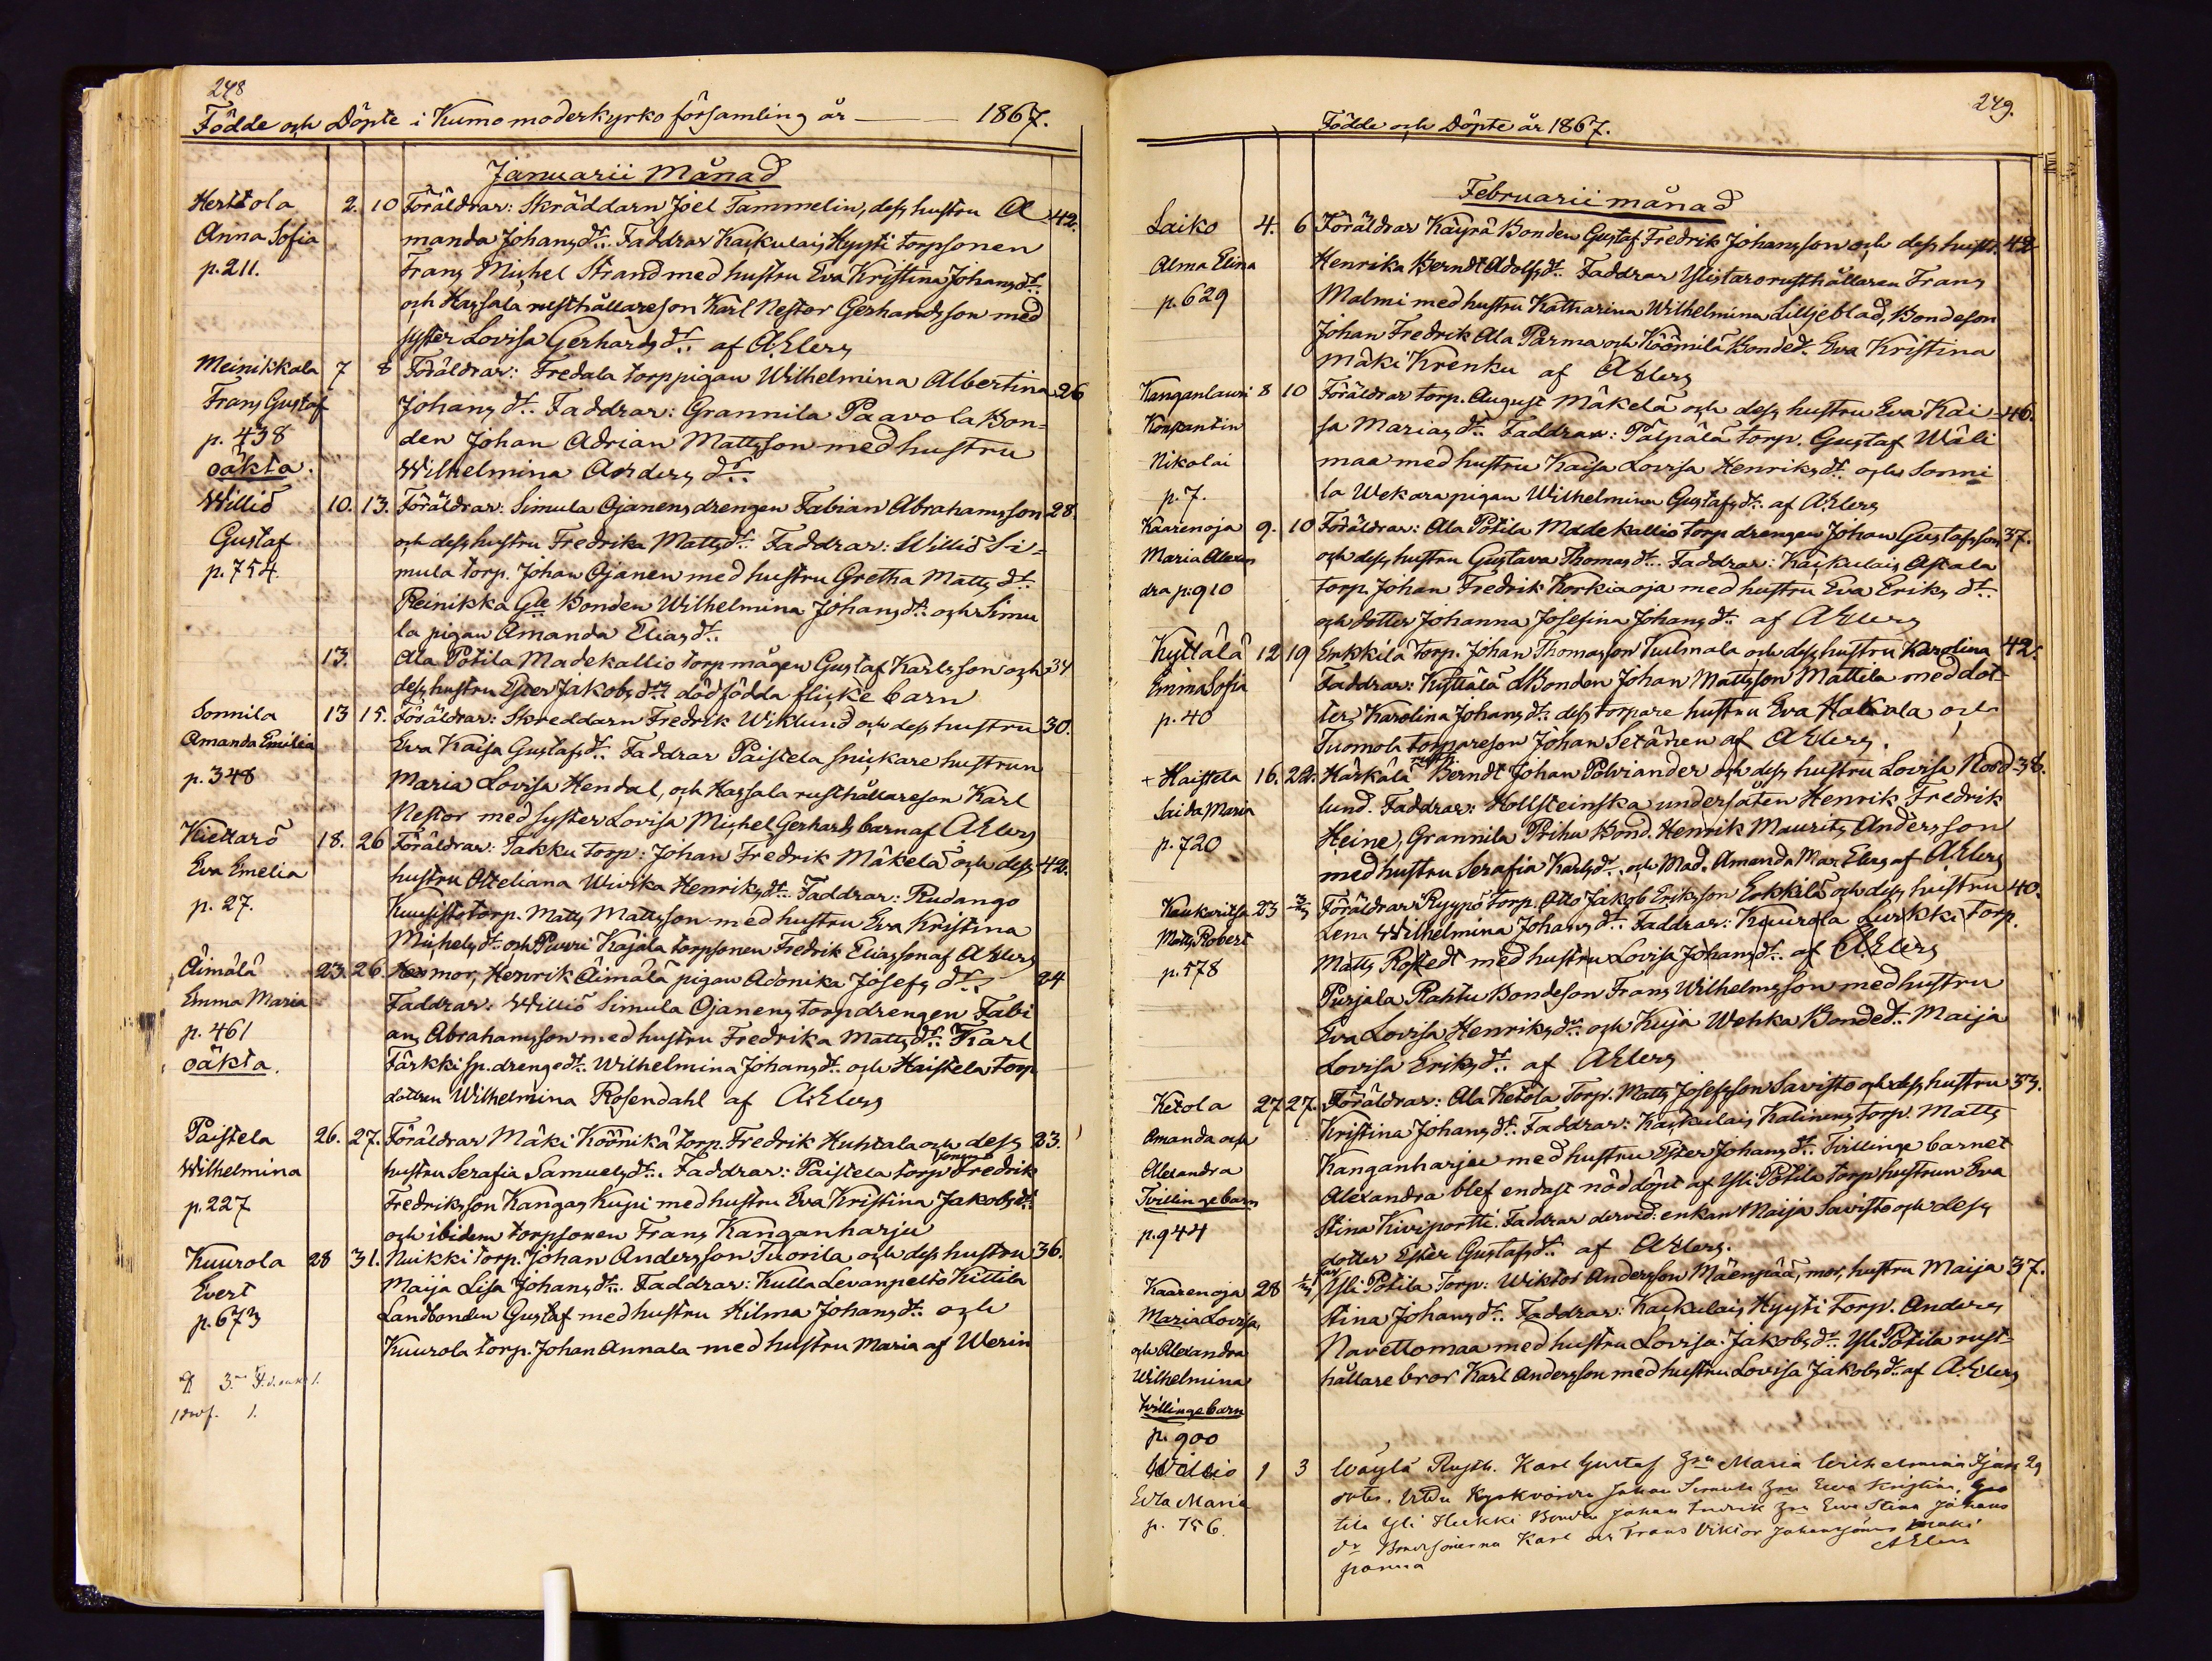 248
Födde och Döpte i Kumo moderkyrko församling år 1867.
Januarii månad
Herttola 2. 10 Föräldrar: Skräddarn Joel Tammelin, dess hustru A 42.
Anna Sofia manda Johansdr. Faddrar Kaukulais Hyyti torpsonen
p. 211. Frans Michel Strand med hustru Eva Kristina Johansdr.
och Kassala rusthållareson Karl Nestor Gerhardsson med
syster Lovisa Gerhardsdr. af A. Elers
Meinikkala 7 8 Föräldrar: Fredala torppigan Wilhelmina Albertina 26
Frans Gustaf Johansdr. Faddrar: Grannila Paavola Bon=
p. 438 den Johan Adrian Mattsson med hustru
oäkta. Wilhelmina Andersdr.
Williö 10. 13. Föräldrar: Simula Ojanens drengen Fabian Abrahamsson 28.
Gustaf och dess hustru Fredrika Mattsdr. Faddrar: Williö Si=
p. 754. mula torp. Johan Ojanen med hustru Gretha Mattsdr.
Reinikka Gle Bonden Wilhelmina Johansdr. och Simu
la pigan Amanda Eliasdr.
13. Ala Potila Madekallio torp mågen Gustaf Karlsson och 34
dess hustru Ester Jakobsdr. dödfödda flicke barn
Sonnila 13 15. Föräldrar: Skreddarn Fredrik Wiklund och dess hustru 30.
Amanda Emilia Eva Kaisa Gustafsdr. Faddrar Paistela snickare hustrun
p. 348 Maria Lovisa Hendal, och Kassala rusthållareson Karl
Nestor med syster Lovisa Michel Gerhards barn af A Elers
Kiettarö 18. 26 Föräldrar: Takku torp: Johan Fredrik Mäkelä och dess 42.
Eva Emelia hustru Otteliana Wivika Henriksdr. Faddrar: Rudango
p. 27. Kuusisto torp. Matts Mattsson med hustru Eva Kristina
Michelsdr. och Puori Kajala torpsonen Fredrik Eliasson af A Elers
Äimälä 23. 26. mor, Henrik Äimälä pigan Adonika Josefsdr. 24
Emma Maria Faddrar: Williö Simula Ojanens torpdrengen Fabi
p. 461 ans Abrahamsson med hustru Fredrika Mattsdr. Karl
oäkta. Färkki sp. drengedr. Wilhelmina Johansdr. och Haistela torp
dottren Wilhelmina Rosendahl af A. Elers
Paistela 26. 27. Föräldrar Mäki Köönikä torp. Fredrik Huhtala och dess 23.
Wilhelmina hustru Serafia Samuelsdr. Faddrar: Paistela torp sonen Fredrik
p. 227 Fredriksson Kangas Kupi med hustru Eva Kristina Jakobsdr.
och ibidem torpsonen Frans Kanganharju
Kuurola 28 31. Nuikki torp. Johan Andersson Tuorila och dess hustru 36.
Evert Maija Lisa Johansdr. Faddrar: Kulla Levanpelto Kittila
p. 673 Landbonden Gustaf med hustru Hilma Johansdr. och
Kuurola torp. Johan Annala med hustru Maria af Werin
249.
Födde och Döpte år 1867.
Februarii månad
Laiko 4. 6 Föräldrar Käyrä Bonden Gustaf Fredrik Johansson och dess hustr. 42
Alma Elina Henrika Berndt Adolfsdr. Faddrar Ylistaro rusthållaren Frans
p. 629 Malmi med hustru Katharina Wilhelmina Lilljeblad, Bondeson
Johan Fredrik Ala Parma och Köömilä Bondedr. Eva Kristina
Mäki Krenku af A Elers
Kanganlauri 8 10 Föräldrar torp. August Mäkelä och dess hustru Eva Kai- 46.
Konstantin sa Mariasdr. Faddrar: Pälpälä torp. Gustaf Wäli
Nikolai maa med hustru Kaisa Lovisa Henriksdr. och Sonni
p. 7. la Wekara pigan Wilhelmina Gustafsdr. af A Elers
Kaarenoja 9. 10 Föräldrar: Ala Potila Madekallio torp drengen Johan Gustafsson 37.
Maria Alexan och dess hustru Gustava Thomasdr. Faddrar: Kaukulais Askala
dra p. 910 torp. Johan Fredrik Korkiaoja med hustru Eva Eriksdr.
och dotter Johanna Josefina Johansdr. af A Elers
Kyttälä 12 19 Erkkilä torp. Johan Thomasson Kulmala och dess hustru Karolina 42.
Emma Sofia Faddrar: Kyttälä Bonden Johan Mattsson Mattila med dot-
p. 40 ter Karolina Johansdr. dess torpare hustru Eva Hakala och
Tuomola torpareson Johan Setänen af A Elers.
+ Haistela 16. 22. Härkälä Berndt Johan Polviander och dess hustru Lovisa Nord- 38.
Saida Maria lund. Faddrar: Hollsteinska undersåten Henrik Fredrik
p. 720 Heine, Grannila Prihu Bond. Henrik Maurits Andersson
med hustru Serafia Karlsdr. och Mad. Amanda Mar. Elers af A. Elers
Kaukaritsa 23 Föräldrar Ryypö torp. Otto Jakob Eriksson Erkkilä och dess hustru 40.
Matts Robert Lena Wilhelmina Johansdr. Faddrar: Kuurola Lurkki torp.
p. 578 Matts Rostedt med hustru Lovisa Johansdr. af A. Elers
Purjala Rahtu Bondeson Frans Wilhelmsson med hustru
Eva Lovisa Henriksdr. och Kuja Wehka Bondedr. Maija
Lovisa Eriksdr. af A Elers
Ketola 27 27. Föräldrar: Ala Ketola Torp. Matts Josefsson Savisto och dess hustru 33.
Amanda och Kristina Johansdr. Faddrar: Kaukulais Kalinens torp. Matts
Alexandra Kanganharju med hustru Ester Johansdr. Tvillinge barnet
Tvillingebarn Alexandra blef endast nöddöpt af Yli Potila torphustrun Eva
p. 944 Stina Kiviportti. Faddrar dervid: enkan Maija Savisto och dess
dotter Ester Gustafsdr. af A Elers.
Kaarenoja 28 Yli Potila Torp: Wiktor Andersson Mäenpää, mor, hustru Maija 37.
Maria Lovisa Stina Johansdr. Faddrar: Kaukulais Hyyti Torp. Anders
och Alexandra Navettomaa med hustru Lovisa Jakobsdr. Yli Potila rust-
Wilhelmina hållare bror Karl Andersson med hustru Lovisa Jakobsdr. af A. Elers
tvillingebarn
p. 900
Williö 1 3 Wäylä Rusth. Karl Gustaf Maria Wilhelmina 29
Edla Maria
p. 756. Bondsönerna Karl och Frans Viktor
A Elers